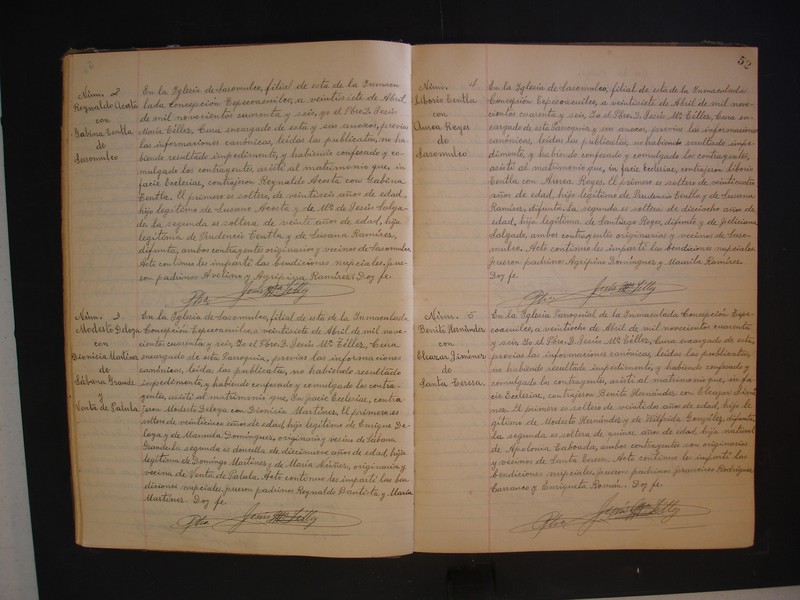 Núm. 2
Reynaldo Acosta
con
Sabina Tentla
de
Sasomulco
En la Iglesia de Sasomulco, filial de esta de la Inmacu
lada Concepción Especoamilco, a veintisiete de Abril
de mil novecientos cuarenta y seis, yo el Pbro. D. Jesús
María Tilley, Cura encargado de esta y sus anexos, previas
las informaciones canónicas, leídas las publicatas, no ha-
biendo resultado impedimento, y habiendo confesado y co-
mulgado los contrayentes, asistí al matrimonio que, in
facie Ecclesiae, contrajeron Reynaldo Acosta con Sabina
Tentla. El primero es soltero, de veintiseis años de edad,
hijo legítimo de Susano Acosta y de Ma. de Jesús
de la segunda es soltera, de veinte años de edad, hija
legítima de Prudencio Tentla y de Susana Ramírez,
difunta, ambos contrayentes originarios y vecinos de Sasomulco
Acto continuo les impartí las bendiciones nupciales, fue-
ron padrinos Avelino y Agripina Ramírez. Doy fe.
Pbro. Jesús Ma. Tilly
Núm. 3
Modesto Deloya
con
Dionicia Martínez
de
Sábana Grande
y
Venta de Palula
En la Iglesia de Sasomulco, filial de esta de la Inmaculada
Concepción Especoamilco, a veintisiete de Abril de mil nove-
cientos cuarenta y seis, Yo el Pbro. D. Jesús Ma. Tilley, Cura
encargado de esta Parroquia, previas las informaciones
canónicas, leídas las publicatas, no habiendo resultado
impedimento, y habiendo confesado y comulgado los contra-
yentes, asistí al matrimonio que, in facie Ecclesiae, contra
jeron Modesto Deloya con Dionisia Martínez. El primero es
soltero de veinticinco años de edad, hijo legítimo de Enrique De-
loya y de Manuela Domínguez, originario y vecino de Sabana
Grande la segunda es doncella de diecinueve años de edad, hija
legítima de Domingo Martínez y de María Núñez, originaria y
vecina de Venta de Palula. Acto continuo les impartí las ben-
diciones nupciales, fueron padrinos Reynaldo Bautista y María
Martínez. Doy fe.
Pbro. Jesús Ma. Tilly
52
Núm. 4
Liborio Tentla
con
Aurea Reyes
de
Sasomulco
En la Iglesia de Sasomulco, filial de esta de la Inmaculada
Concepción Especoamilco, a veintisiete de Abril de mil nove-
cientos cuarenta y seis, Yo el Pbro. D. Jesús Ma. Tilley, Cura en-
cargado de esta Parroquia y sus anexos, previas las informaciones
canónicas, leídas las publicatas no habiendo resultado impe-
dimento, y habiendo confesado y comulgado los contrayentes,
asistí al matrimonio que, in facie Ecclesiae, contrajeron Liborio
Tentla con Aurea Reyes. El primero es soltero de veinticuatro
años de edad, hijo legítimo de Prudencio Tentla y de Susana
Ramírez, difunta, la segunda es soltera de dieciocho años de
edad, hija legítima de Santiago Reyes, difunto y de Feliciana
Salgado, ambos contrayentes originarios y vecinos de Saso-
mulco. Acto continuo les impartí las bendiciones nupciales
fueron padrinos Agripino Domínguez y Maurila Ramírez.
Doy fe.
Pbro. Jesús Ma. Tilly
Núm. 5
Benito Hernández
con
Eleazar Jiménez
de
Santa Teresa.
En la Iglesia Parroquial de la Inmaculada Concepción Espe-
coamilco, a veintiocho de Abril de mil novecientos cuarenta
y seis, Yo el Pbro. D. Jesús Ma. Tilley, Cura encargado de esta,
previas las informaciones canónicas, leídas las publicatas,
no habiendo resultado impedimento, y habiendo confesado y
comulgado la contrayente, asistí al matrimonio que, in fa-
cie Ecclesiae, contrajeron Benito Hernández con Eleazar Jimé
nez. El primero es soltero de veintidos años de edad, hijo le-
gítimo de Modesto Hernández y de Wilfrida González, difunta,
la segunda es soltera de quince años de edad, hija natural
de Apolonia Taboada, ambos contrayentes son originarios
y vecinos de Santa Teresa. Acto continuo les impartí las
bendiciones nupciales, fueron padrinos Francisco Rodríguez
Carranco y Enriqueta Román. Doy fe.
Pbro. Jesús Ma. Tilly